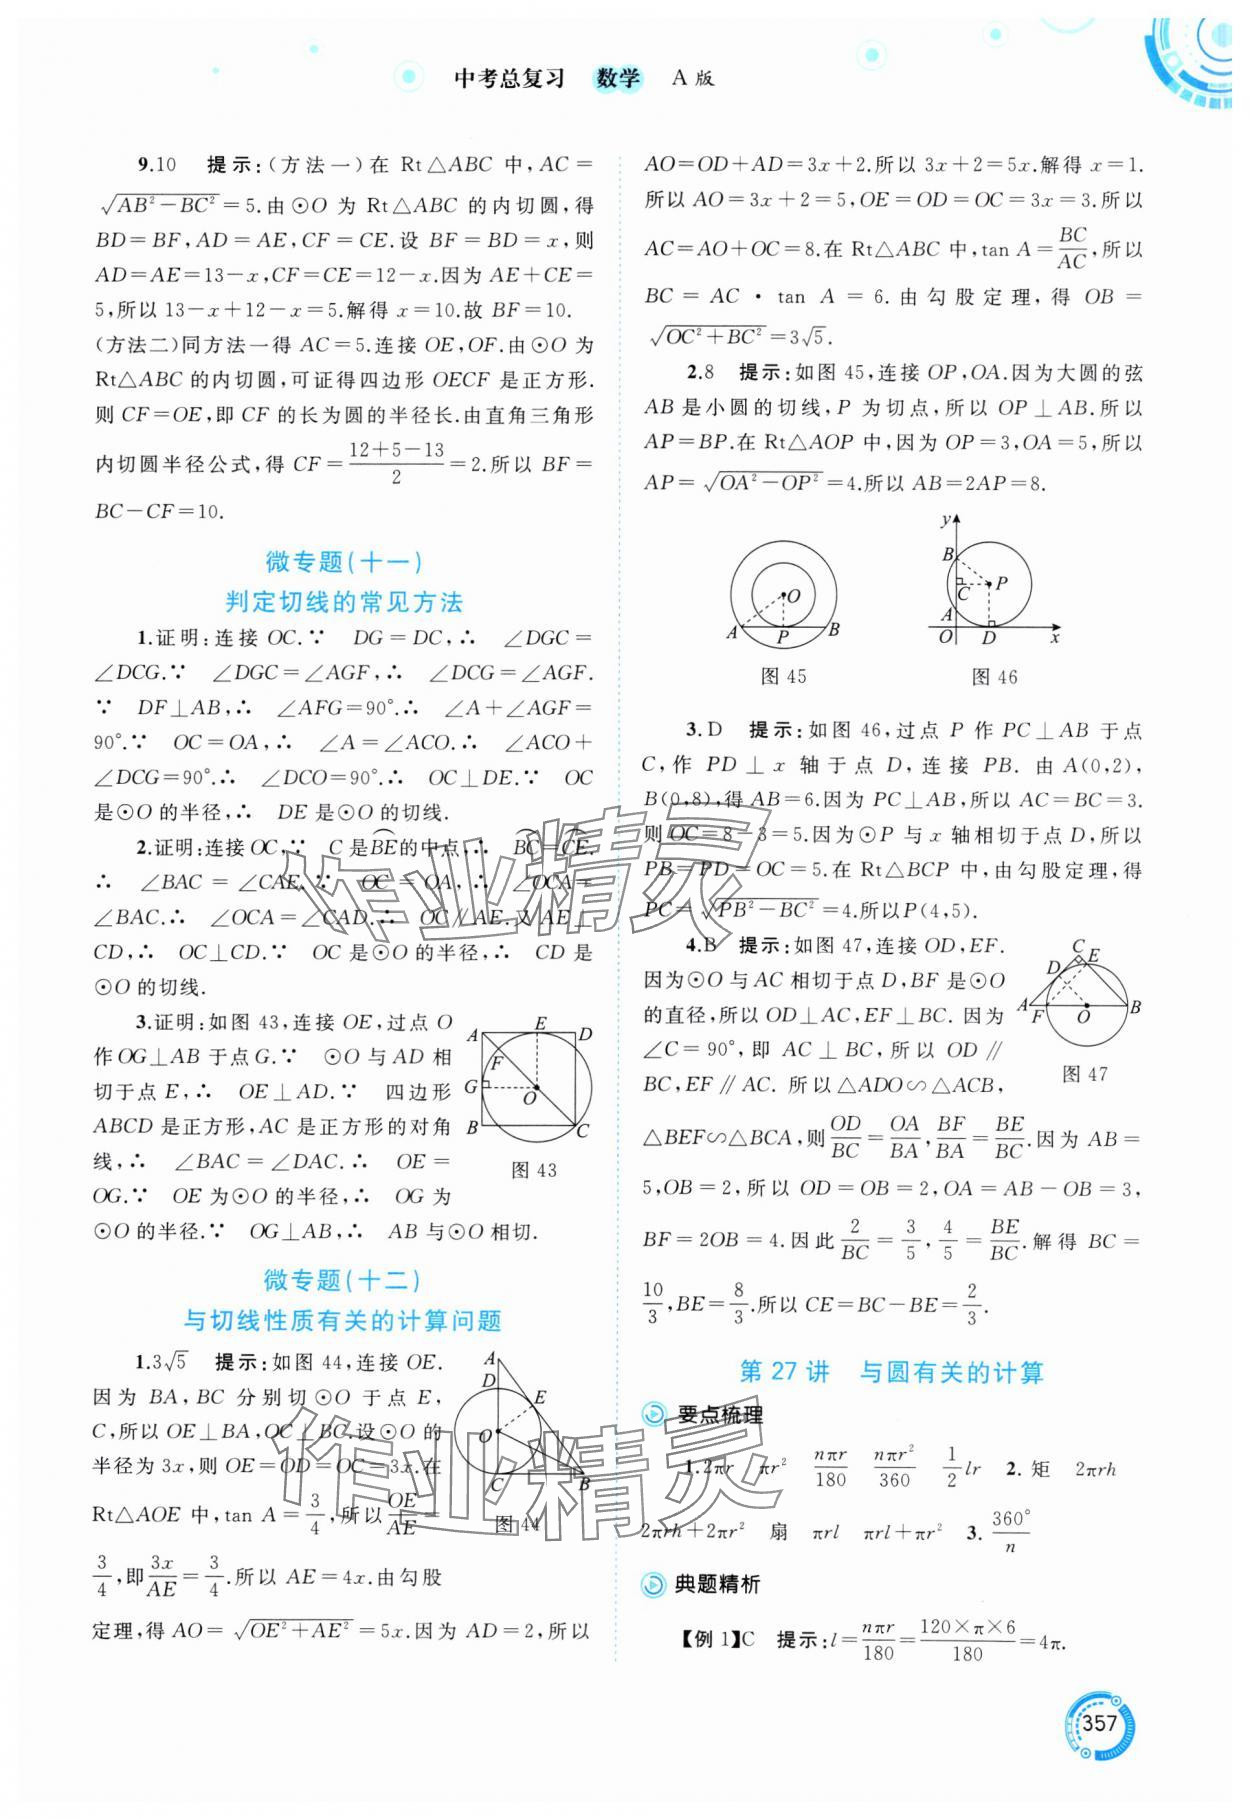 中考总复习 数学 A 版
9.10 提示:(方法一)在 Rt△ABC 中,AC=
√(AB²-BC²)=5.由⊙O 为 Rt△ABC 的内切圆,得
BD=BF,AD=AE,CF=CE.设 BF=BD=x,则
AD=AE=13-x,CF=CE=12-x.因为 AE+CE=
5,所以 13-x+12-x=5.解得 x=10.故 BF=10.
(方法二)同方法一得 AC=5.连接 OE,OF.由⊙O 为
Rt△ABC 的内切圆,可证得四边形 OECF 是正方形.
则 CF=OE,即 CF 的长为圆的半径长.由直角三角形
内切圆半径公式,得 CF=(12+5-13)/2=2.所以 BF=
BC-CF=10.
微专题(十一)
判定切线的常见方法
1.证明:连接 OC.∵ DG=DC,∴ ∠DGC=
∠DCG.∵ ∠DGC=∠AGF,∴ ∠DCG=∠AGF.
∵ DF⊥AB,∴ ∠AFG=90°.∴ ∠A+∠AGF=
90°.∵ OC=OA,∴ ∠A=∠ACO.∴ ∠ACO+
∠DCG=90°.∴ ∠DCO=90°.∴ OC⊥DE.∵ OC
是⊙O 的半径,∴ DE是⊙O 的切线.
2.证明:连接 OC,∵ C 是BE⌒的中点,∴ BC⌒=CE⌒.
∴ ∠BAC=∠CAE.∵ OC=OA,∴ ∠OCA=
∠BAC.∴ ∠OCA=∠CAD.∴ OC∥AE.又AE⊥
CD,∴ OC⊥CD.∵ OC 是⊙O 的半径,∴ CD 是
⊙O 的切线.
3.证明:如图 43,连接 OE,过点 O
作OG⊥AB 于点G.∵ ⊙O 与 AD 相
切于点 E,∴ OE⊥AD.∵ 四边形
ABCD 是正方形,AC 是正方形的对角
线,∴ ∠BAC=∠DAC.∴ OE=
OG.∵ OE 为⊙O 的半径,∴ OG 为
⊙O 的半径.∵ OG⊥AB,∴ AB 与⊙O 相切.
A E D F G O B C
图 43
微专题(十二)
与切线性质有关的计算问题
1.3√5 提示:如图 44,连接 OE.
因为 BA,BC 分别切⊙O 于点 E,
C,所以 OE⊥BA,OC⊥BC.设⊙O 的
半径为 3x,则 OE=OD=OC=3x.在
Rt△AOE 中,tan A=3/4,所以OE/AE=
3/4,即3x/AE=3/4.所以 AE=4x.由勾股
定理,得 AO=√(OE²+AE²)=5x.因为 AD=2,所以
A D E O C B
图 44
AO=OD+AD=3x+2.所以 3x+2=5x.解得 x=1.
所以 AO=3x+2=5,OE=OD=OC=3x=3.所以
AC=AO+OC=8.在 Rt△ABC 中,tan A=BC/AC,所以
BC=AC·tan A=6.由勾股定理,得 OB=
√(OC²+BC²)=3√5.
2.8 提示:如图 45,连接 OP,OA.因为大圆的弦
AB 是小圆的切线,P 为切点,所以 OP⊥AB.所以
AP=BP.在 Rt△AOP 中,因为 OP=3,OA=5,所以
AP=√(OA²-OP²)=4.所以 AB=2AP=8.
O A P B
图 45
y B P C A O D x
图 46
3.D 提示:如图 46,过点 P 作 PC⊥AB 于点
C,作 PD⊥x 轴于点 D,连接 PB. 由 A(0,2),
B(0,8),得 AB=6.因为 PC⊥AB,所以 AC=BC=3.
则 OC=8-3=5.因为⊙P 与 x 轴相切于点 D,所以
PB=PD=OC=5.在 Rt△BCP 中,由勾股定理,得
PC=√(PB²-BC²)=4.所以P(4,5).
4.B 提示:如图 47,连接 OD,EF.
因为⊙O 与 AC 相切于点 D,BF 是⊙O
的直径,所以 OD⊥AC,EF⊥BC. 因为
∠C=90°,即 AC⊥BC,所以 OD∥
BC,EF∥AC. 所以△ADO∽△ACB,
C E D A F O B
图 47
△BEF∽△BCA,则OD/BC=OA/BA,BF/BA=BE/BC.因为 AB=
5,OB=2,所以 OD=OB=2,OA=AB-OB=3,
BF=2OB=4.因此2/BC=3/5,4/5=BE/BC.解得 BC=
10/3,BE=8/3.所以 CE=BC-BE=2/3.
第 27 讲 与圆有关的计算
要点梳理
1.2πr πr² nπr/180 nπr²/360 1/2 lr 2. 矩 2πrh
2πrh+2πr² 扇 πrl πrl+πr² 3. 360°/n
典题精析
【例 1】C 提示:l=nπr/180=(120×π×6)/180=4π.
357
作业精灵
作业精灵